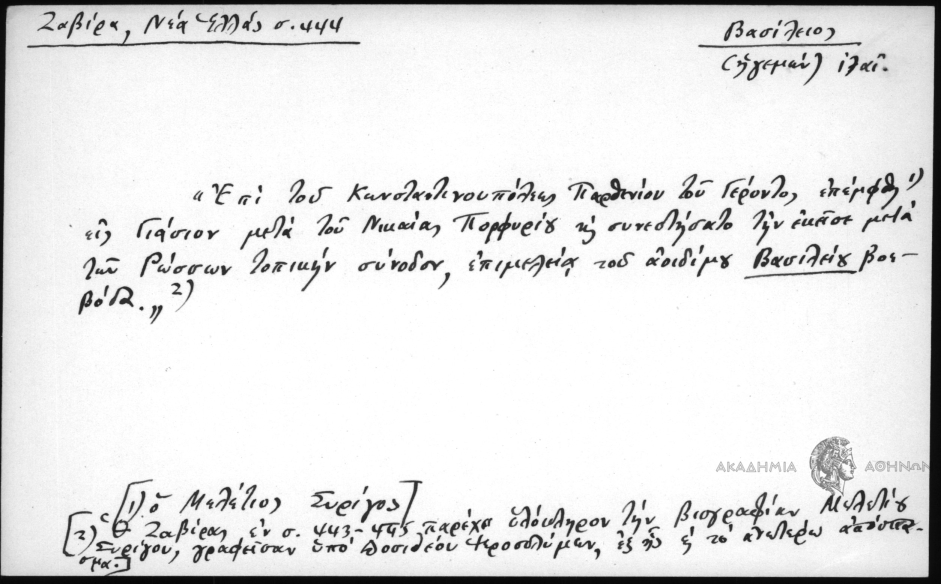 Ζαβίρα, Νέα Ἑλλὰς σ. 444
Βασίλειος
(ἡγεμών)
"Ἐπὶ τοῦ Κωνσταντινουπόλεως Παρθενίου τοῦ Γέροντος ἐπέμφθη 1)
εἰς Γιάσιον μετὰ τοῦ Νικαίας Πορφυρίου κὴ συνεστήσατο τὴν ἐκεῖσε μετὰ
τῶν Ρώσσων τοπικὴν σύνοδον, ἐπιμελείᾳ τοῦ ἀοιδίμου Βασιλείου βοε-
βόδα.„ 2)
ΑΚΑΔΗΜΙΑ ΑΘΗΝΩΝ
[1) ὁ Μελέτιος Συρίγος]
[2) Ὁ Ζαβίρας ἐν σ. 443-445 παρέχει ὁλόκληρον τὴν βιογραφίαν Μελετίου
Συρίγου, γραφεῖσαν ὑπὸ Δοσιθέου Ἱεροσολύμων, ἐξ ἧς κ τὸ ἀνωτέρω ἀπόσπα-
σμα.]